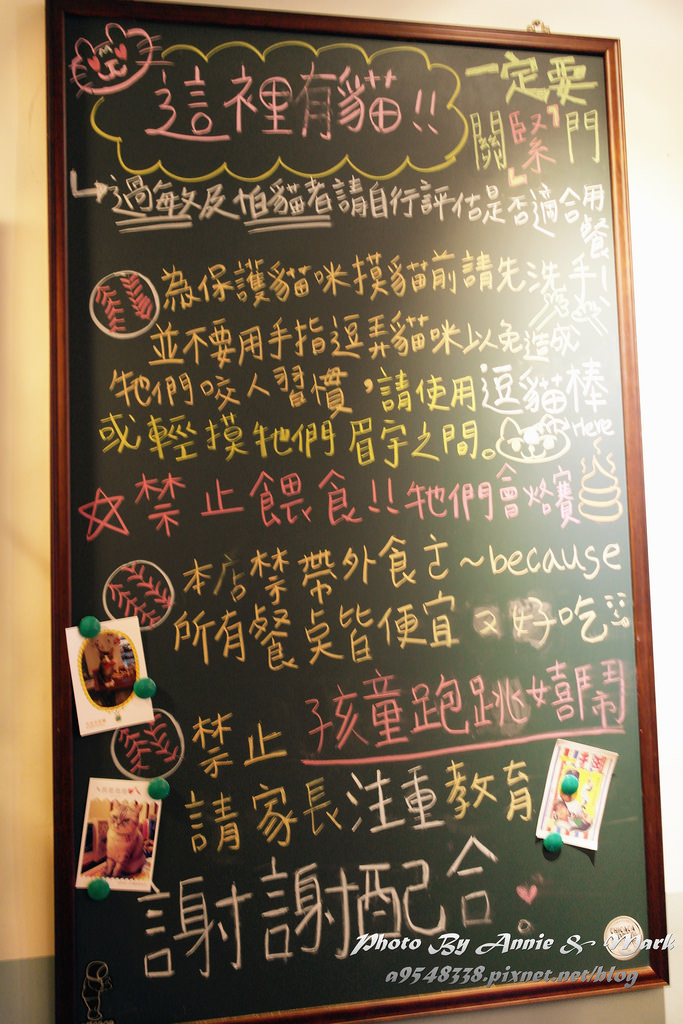 這裡有貓!!
一定要
關「緊」門
過敏及怕貓者請自行評估是否適合用
餐
為保護貓咪摸貓前請先洗手!
並不要用手指逗弄貓咪以免造成
牠們咬人習慣,請使用逗貓棒
Here
或輕摸牠們眉宇之間。
禁止餵食!!牠們會烙賽
本店禁帶外食ㄛ~because
所有餐點皆便宜又好吃
禁止孩童跑跳嬉鬧
請家長注重教育
謝謝配合。
Photo By Annie & Mark
a9548338.pixnet.net/blog